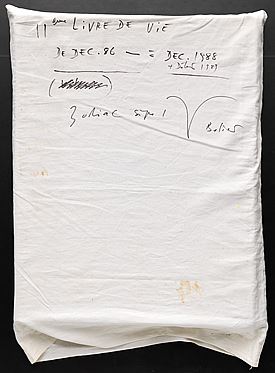 11ème LIVRE DE VIE
DE DEC. 86 — = DEC. 1988
+ Début 1989
Zodiac sign !
Belier